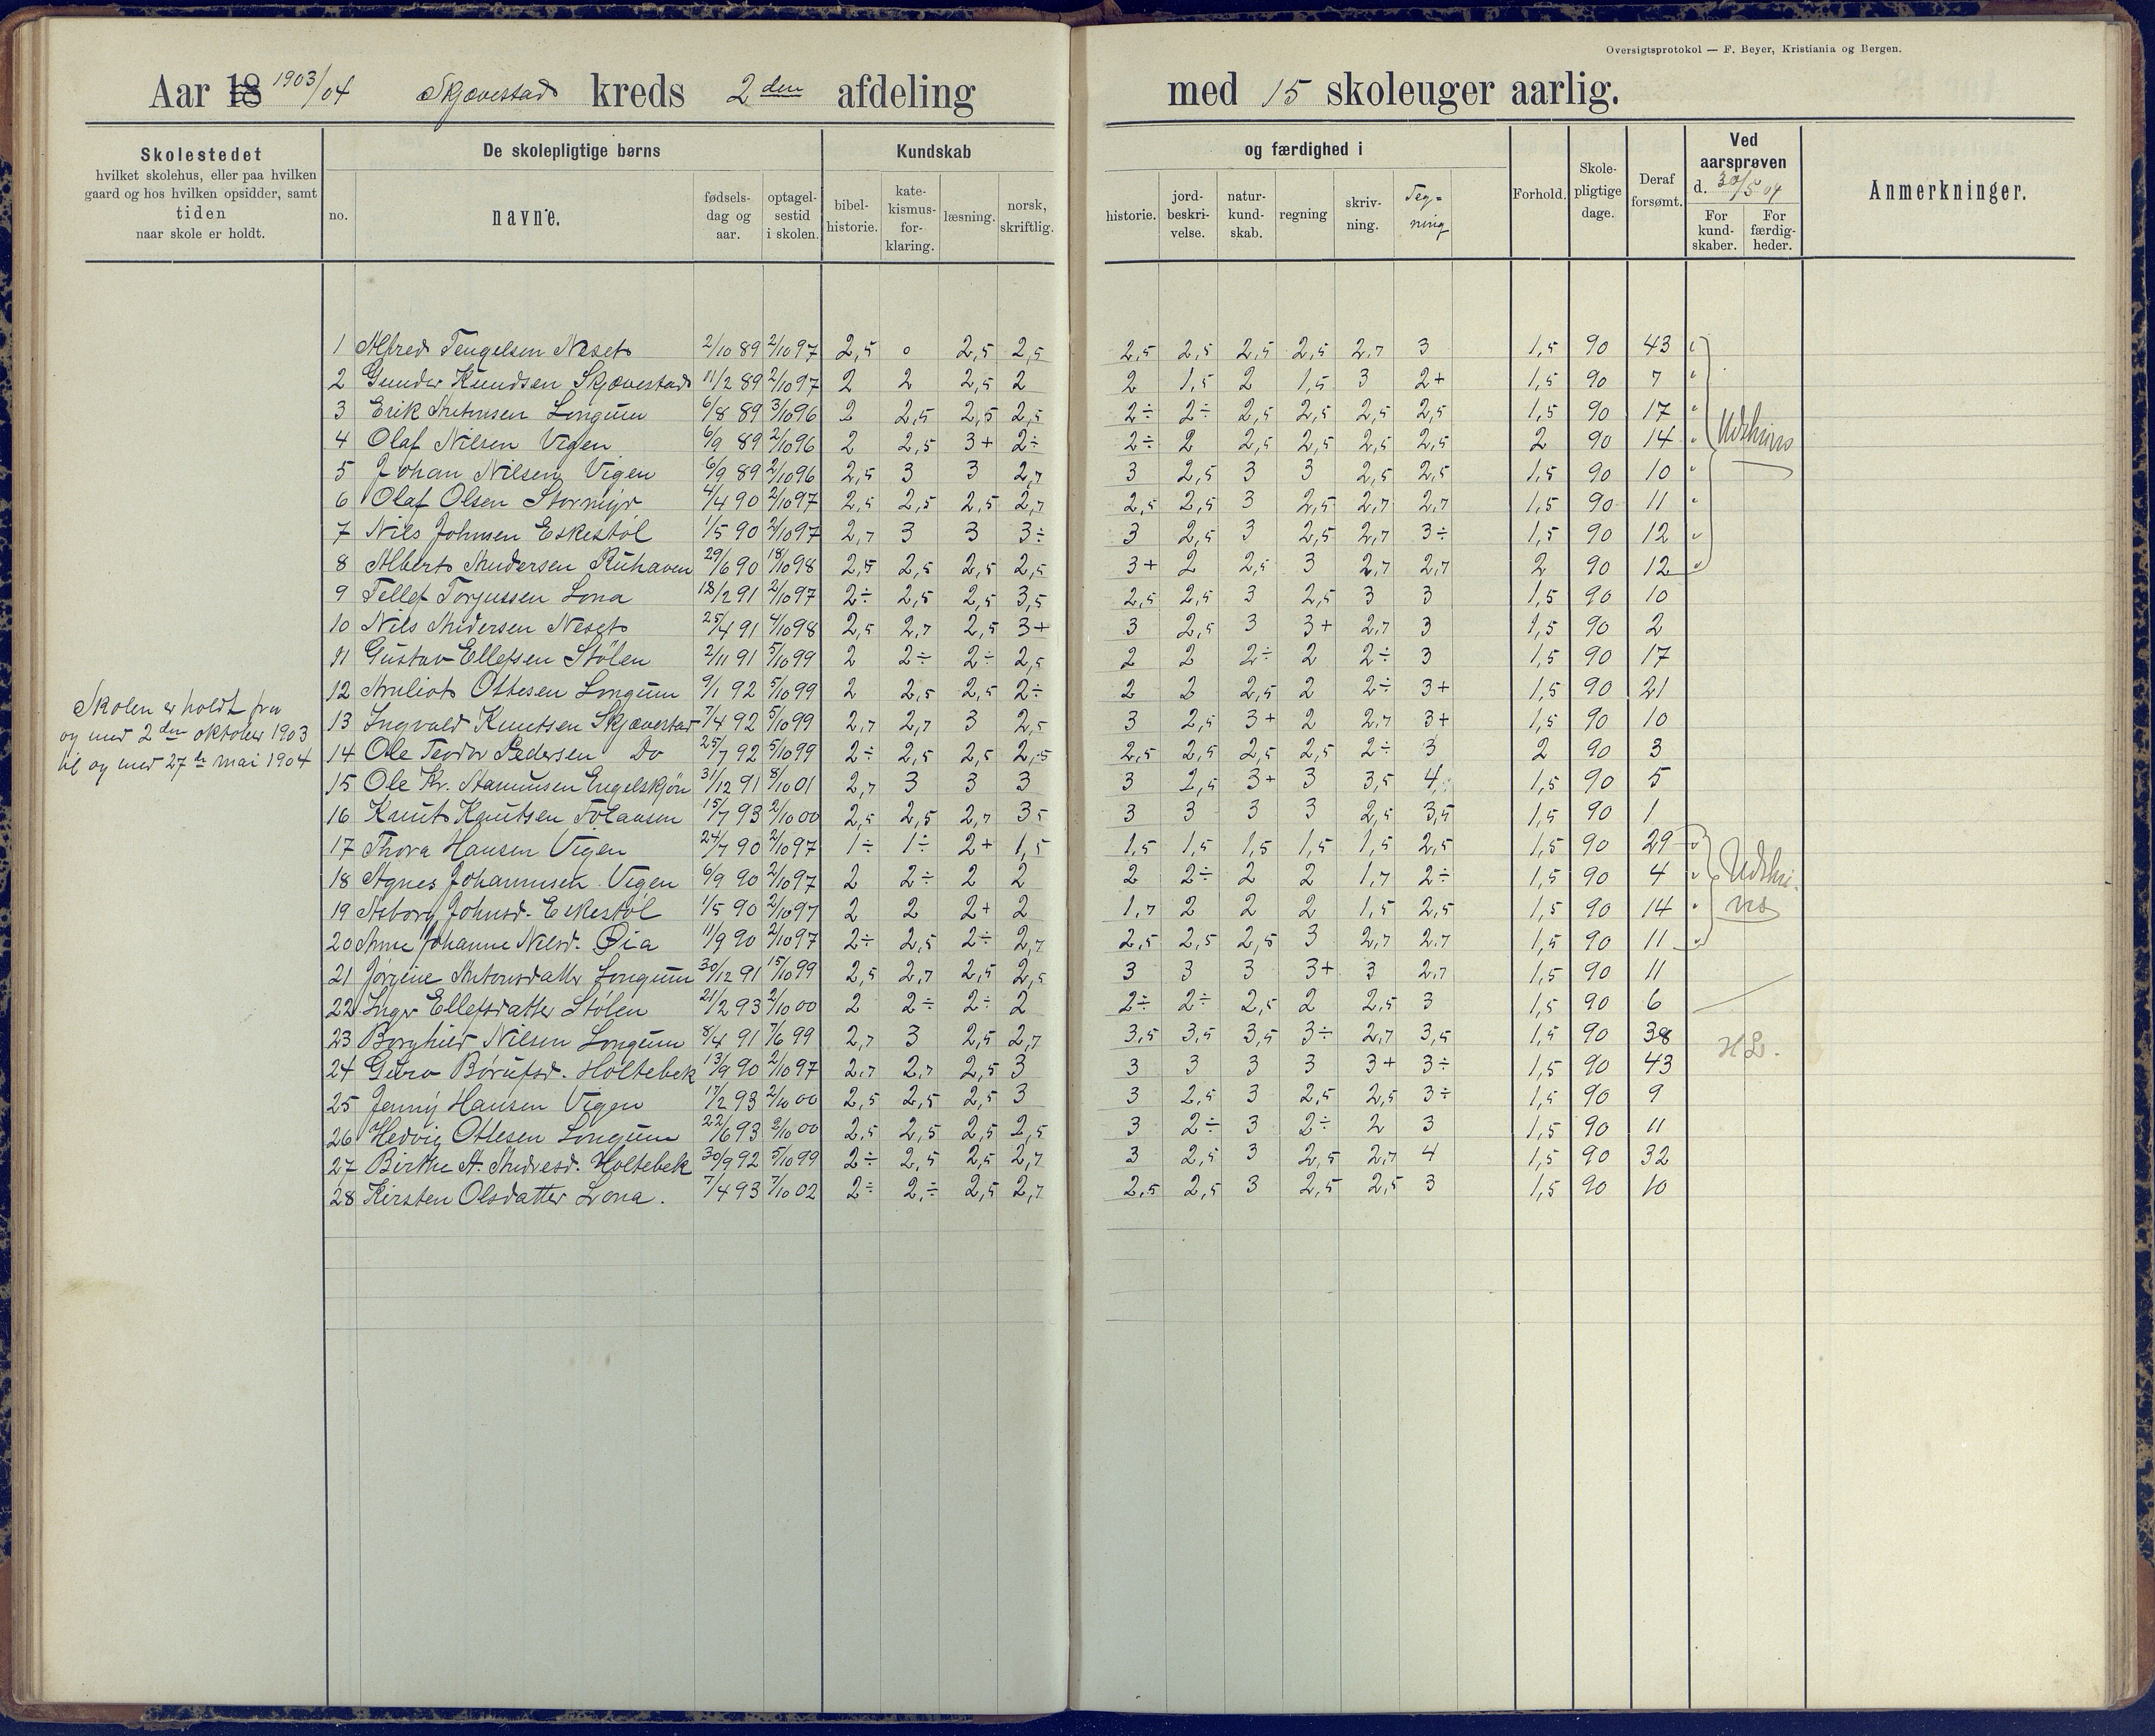 Oversigtsprotokol — F. Beyer, Kristiania og Bergen.
Aar 18 1903/04 Skjævestad kreds 2den afdeling med 15 skoleuger aarlig.
Skolestedet
hvilket skolehus, eller paa hvilken
gaard og hos hvilken opsidder, samt
tiden
naar skole er holdt.
De skolepligtige børns
no.
navne.
fødsels-
dag og
aar.
optagel-
sestid
i skolen.
Kundskab
bibel-
historie.
kate-
kismus-
for-
klaring.
læsning.
norsk,
skriftlig.
og færdighed i
historie.
jord-
beskri-
velse.
natur-
kund-
skab.
regning
skriv-
ning.
Teg-
ning
Forhold.
Skole-
pligtige
dage.
Deraf
forsømt.
Ved
aarsprøven
d. 30/5 04
For
kund-
skaber.
For
færdig-
heder.
Anmerkninger.
Skolen er holdt fra
og med 2den oktober 1903
til og med 27de mai 1904
1 Alfred Tengelsen Neset 2/10 89 2/10 97 2,5 0 2,5 2,5 2,5 2,5 2,5 2,5 2,7 3 1,5 90 43
2 Gunder Knudsen Skjævestad 11/2 89 2/10 97 2 2 2,5 2 2 1,5 2 1,5 3 2+ 1,5 90 7
3 Erik Antonsen Longum 6/8 89 3/10 96 2 2,5 2,5 2,5 2÷ 2÷ 2,5 2,5 2,5 2,5 1,5 90 17
4 Olaf Nilsen Vigen 6/9 89 2/10 96 2 2,5 3+ 2÷ 2÷ 2 2,5 2,5 2,5 2,5 2 90 14
5 Johan Nilsen Vigen 6/9 89 2/10 96 2,5 3 3 2,7 3 2,5 3 3 2,5 2,5 1,5 90 10
6 Olaf Olsen Stormyr 4/4 90 2/10 97 2,5 2,5 2,5 2,7 2,5 2,5 3 2,5 2,7 2,7 1,5 90 11
7 Nils Johnsen Eskestøl 1/5 90 2/10 97 2,7 3 3 3÷ 3 2,5 3 2,5 2,7 3÷ 1,5 90 12
8 Albert Andersen Ruhaven 29/6 90 18/10 98 2,5 2,5 2,5 2,5 3+ 2 2,5 3 2,7 2,7 2 90 12
Udskrives
9 Tellef Torjussen Lona 18/2 91 2/10 97 2÷ 2,5 2,5 3,5 2,5 2,5 3 2,5 3 3 1,5 90 10
10 Nils Andersen Neset 25/4 91 4/10 98 2,5 2,7 2,5 3+ 3 2,5 3 3+ 2,7 3 1,5 90 2
11 Gustav Ellefsen Stølen 2/11 91 5/10 99 2 2÷ 2÷ 2,5 2 2 2÷ 2 2÷ 3 1,5 90 17
12 Anliot Ottesen Longum 9/1 92 5/10 99 2 2,5 2,5 2÷ 2 2 2,5 2 2÷ 3+ 1,5 90 21
13 Ingvald Knutsen Skjævestad 7/4 92 5/10 99 2,7 2,7 3 2,5 3 2,5 3+ 2 2,7 3+ 1,5 90 10
14 Ole Teodor Pedersen Do 25/7 92 5/10 99 2÷ 2,5 2,5 2,5 2,5 2,5 2,5 2,5 2÷ 3 2 90 3
15 Ole Kr. Aamundsen Engelskjøn 31/12 91 8/10 01 2,7 3 3 3 3 2,5 3+ 3 3,5 4 1,5 90 5
16 Knut Knutsen 15/7 93 2/10 00 2,5 2,5 2,7 3,5 3 3 3 3 2,5 3,5 1,5 90 1
17 Thora Hansen Vigen 24/7 90 2/10 97 1÷ 1÷ 2+ 1,5 1,5 1,5 1,5 1,5 1,5 2,5 1,5 90 29
18 Agnes Johannsen Vigen 6/9 90 2/10 97 2 2÷ 2 2 2 2÷ 2 2 1,7 2÷ 1,5 90 4
19 Asborg Johnsd. Eskestøl 1/5 90 2/10 97 2 2 2+ 2 1,7 2 2 2 1,5 2,5 1,5 90 14
20 Anne Johanne Nilsd. Øia 11/9 90 2/10 97 2÷ 2,5 2÷ 2,7 2,5 2,5 2,5 3 2,7 2,7 1,5 90 11
Udskri-
ves
21 Jørgine Antonsdatter Longum 30/12 91 15/10 99 2,5 2,7 2,5 2,5 3 3 3 3+ 3 2,7 1,5 90 11
22 Inger Ellefsdatter Stølen 21/2 93 2/10 00 2 2÷ 2÷ 2 2÷ 2÷ 2,5 2 2,5 3 1,5 90 6
23 Borghild Nilsen Longum 8/4 91 7/6 99 2,7 3 2,5 2,7 3,5 3,5 3,5 3÷ 2,7 3,5 1,5 90 38
24 Guro Børufsd. Holtebek 13/9 90 2/10 97 2,7 2,7 2,5 3 3 3 3 3 3+ 3÷ 1,5 90 43
25 Jenny Hansen Vigen 17/2 93 2/10 00 2,5 2,5 2,5 3 3 2,5 3 2,5 2,5 3÷ 1,5 90 9
26 Hedvig Ottesen Longum 22/6 93 2/10 00 2,5 2,5 2,5 2,5 3 2÷ 3 2÷ 2 3 1,5 90 11
27 Birthe A. Andresd. Holtebek 30/9 92 5/10 99 2÷ 2,5 2,5 2,7 3 2,5 3 2,5 2,7 4 1,5 90 32
28 Kirsten Olsdatter Lona. 7/4 93 7/10 02 2÷ 2,÷ 2,5 2,7 2,5 2,5 3 2,5 2,5 3 1,5 90 10